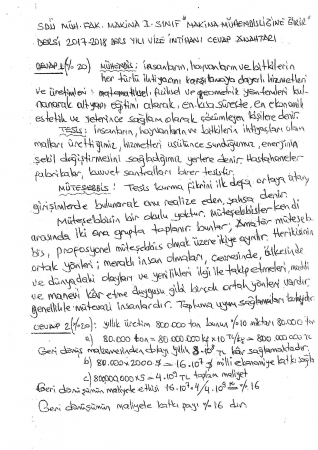 SDÜ MÜH. FAK. MAKİNA 1. SINIF "MAKİNA MÜHENDİSLİĞİNE GİRİŞ"
DERSİ 2017-2018 DERS YILI VİZE İMTİHANI CEVAP ANAHTARI
CEVAP 1 (%20) MÜHENDİS: insanların, hayvanların ve bitkilerin
her türlü ihtiyacını karşılamaya dayalı hizmetleri
ve üretimleri: matematiksel, fiziksel ve geometrik yöntemleri kul-
lanarak altyapı eğitimi alarak, en kısa sürede, en ekonomik
estetik ve yeterince sağlam olarak çözümleyen kişilere denir.
TESİS: insanların, hayvanların ve bitkilerin ihtiyaçları olan
malları ürettiğimiz, hizmetleri üstünce sunduğumuz, enerjinin
şekil değiştirmesini sağladığımız yerlere denir. Hastahaneler
fabrikalar, kuvvet santralları birer tesistir.
MÜTEŞEBBİS: Tesis kurma fikrini ilk defa ortaya atan,
girişimlerde bulunarak onu realize eden, şahsa denir.
Müteşebbisin bir okulu yoktur. Müteşebbisler kendi
arasında iki ana grupta toplanır bunlar; Amatör müteşeb-
bis, profesyonel müteşebbis olmak üzere ikiye ayrılır. Herikisinin
ortak yönleri; meraklı insan olmaları, çevresinde, ülkelerinde
ve dünyadaki olayları ve yenilikleri ilgi ile takip etmeleri, maddi
ve manevi kâr etme duygusu gibi birçok ortak yönleri vardır.
genellikle materyal insanlardır. Topluma uyum sağlamaları
CEVAP 2 (%20): yıllık üretim 800.000 ton bunun %10 miktarı 80.000 ton
a) 80.000 ton = 80.000.000 kg x 10 TL/kg = 800.000.000 TL
Geri dönüş malzemesinden dolayı yıllık 8.10⁸ TL kâr sağlamaktadır.
b) 80.000 x 2000 $ = 16.10⁷ $ milli ekonomiye katkı sağlar
c) 800.000.000 x 5 = 4.10⁹ TL toplam maliyet
Geri dönüşümün maliyete etkisi 16.10⁷.4/4.10⁹ = %16
Geri dönüşümün maliyete katkı payı %16 dır.